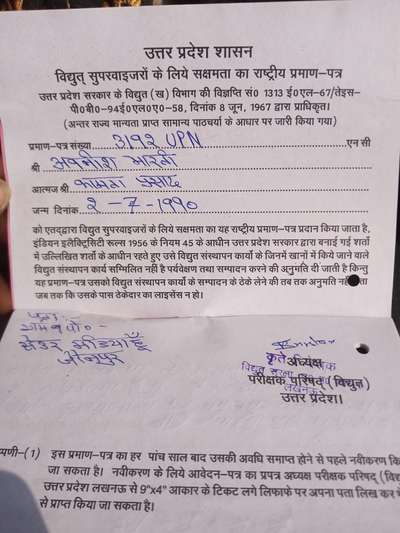 उत्तर प्रदेश शासन
विद्युत् सुपरवाइजरों के लिये सक्षमता का राष्ट्रीय प्रमाण–पत्र
उत्तर प्रदेश सरकार के विद्युत (ख) विभाग की विज्ञप्ति सं० 1313 ई०एल–67/तेइस–
पी०बी०–94ई०एल०ए०–58, दिनांक 8 जून, 1967 द्वारा प्राधिकृत।
(अन्तर राज्य मान्यता प्राप्त सामान्य पाठचर्या के आधार पर जारी किया गया)
प्रमाण–पत्र संख्या 3192 UPN एन सी
श्री अवनीश भारती
आत्मज श्री कामता प्रसाद
जन्म दिनांक 2-7-1990
को एतद्द्वारा विद्युत सुपरवाइजरों के लिये सक्षमता का यह राष्ट्रीय प्रमाण–पत्र प्रदान किया जाता है,
इंडियन इलेक्ट्रिसिटी रूल्स 1956 के नियम 45 के आधीन उत्तर प्रदेश सरकार द्वारा बनाई गई शर्तो
में उल्लिखित शर्तों के आधीन रहते हुए उसे विद्युत संस्थापन कार्यो के जिनमें खानों में किये जाने वाले
विद्युत संस्थापन कार्य सम्मिलित नहीं है पर्यवेक्षण तथा सम्पादन करने की अनुमति दी जाती है किन्तु
यह प्रमाण–पत्र उसको विद्युत संस्थापन कार्यो के सम्पादन के ठेके लेने की तब तक अनुमति नहीं
जब तक कि उसके पास ठेकेदार का लाइसेंस न हो।
पता :-
ग्राम व पो० -
जौनपुर
कृते अध्यक्ष
विद्युत सुरक्षा
परीक्षक परिषद् (विद्युत)
लखनऊ
उत्तर प्रदेश।
प्पणी–(1) इस प्रमाण–पत्र का हर पांच साल बाद उसकी अवधि समाप्त होने से पहले नवीकरण कि
जा सकता है। नवीकरण के लिये आवेदन–पत्र का प्रपत्र अध्यक्ष परीक्षक परिषद् (विद्
उत्तर प्रदेश लखनऊ से 9"x4" आकार के टिकट लगे लिफाफे पर अपना पता लिख कर भे
से प्राप्त किया जा सकता है।